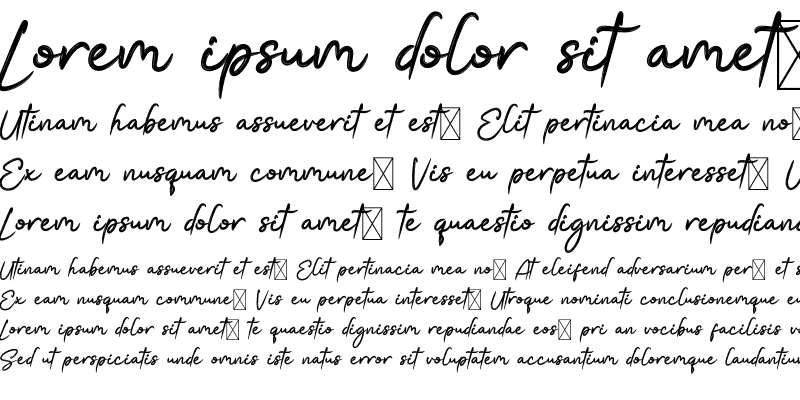 Lorem ipsum dolor sit amet
Utinam habemus assueverit et est Elit pertinacia mea no
Ex eam nusquam commune Vis eu perpetua interesset U
Lorem ipsum dolor sit amet te quaestio dignissim repudiand
Utinam habemus assueverit et est Elit pertinacia mea no At eleifend adversarium per et s
Ex eam nusquam commune Vis eu perpetua interesset Utroque nominati conclusionemque eu
Lorem ipsum dolor sit amet te quaestio dignissim repudiandae eos pri an vocibus facilisis vo
Sed ut perspiciatis unde omnis iste natus error sit voluptatem accusantium doloremque laudantium